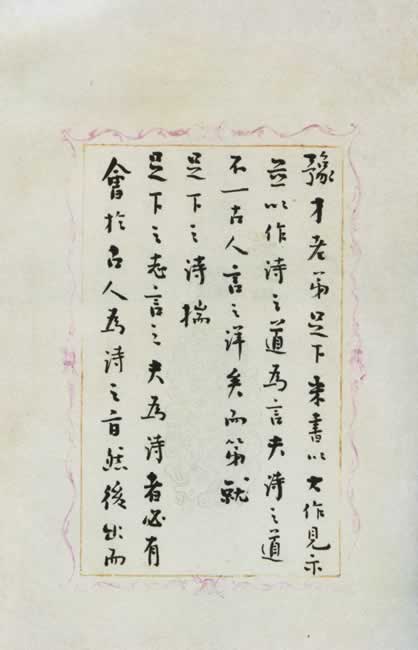 豫才老弟足下来書以大作見示
並以作诗之道為言夫诗之道
不一古人言之详矣而第就
足下之诗揣
足下之志言之夫為诗者必有
會於古人為诗之旨然後出而